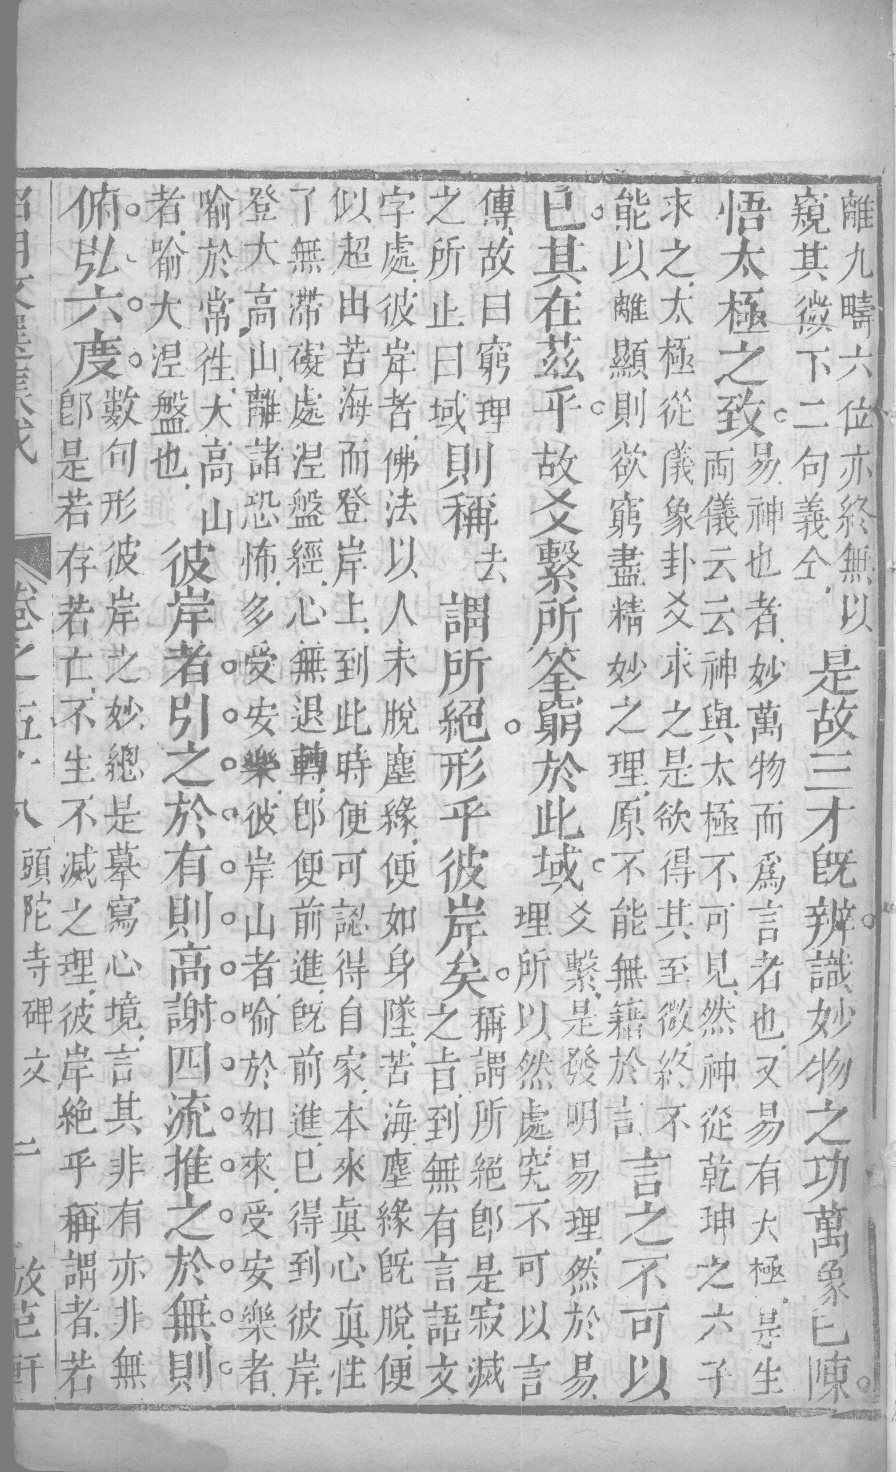 離九疇六位亦終無以
窺其微下二句義仝
是故三才旣辨識妙物之功萬象已陳
悟太極之致
易神也者妙萬物而爲言者也又易有太極是生
両儀云云神與太極不可見然神從乾坤之六子
求之太極從儀象卦爻求之是欲得其至微終不
能以離顯則欲窮盡精妙之理原不能無籍於言
言之不可以
已其在茲乎故爻繫所筌窮於此域
爻繫是發明易理然於易
理所以然處究不可以言
傳故曰窮理
之所止曰域
則稱
去
謂所絕形乎彼岸矣
稱謂所絕卽是寂滅
之旨到無有言語文
字處彼岸者佛法以人未脫塵緣便如身墜苦海塵緣旣脫便
似超出苦海而登岸上到此時便可認得自家本來眞心眞性
了無滯礙處涅盤經心無退轉卽便前進旣前進已得到彼岸
登大高山離諸恐怖多受安樂彼岸山者喻於如來受安樂者
喻於常徃大高山
者喻大涅盤也
彼岸者引之於有則高謝四流推之於無則
俯弘六度
數句形彼岸之妙總是摹寫心境言其非有亦非無
卽是若存若亡不生不滅之理彼岸絕乎稱謂者若
昭明文選集成
卷之五十八
頭陀寺碑文
二